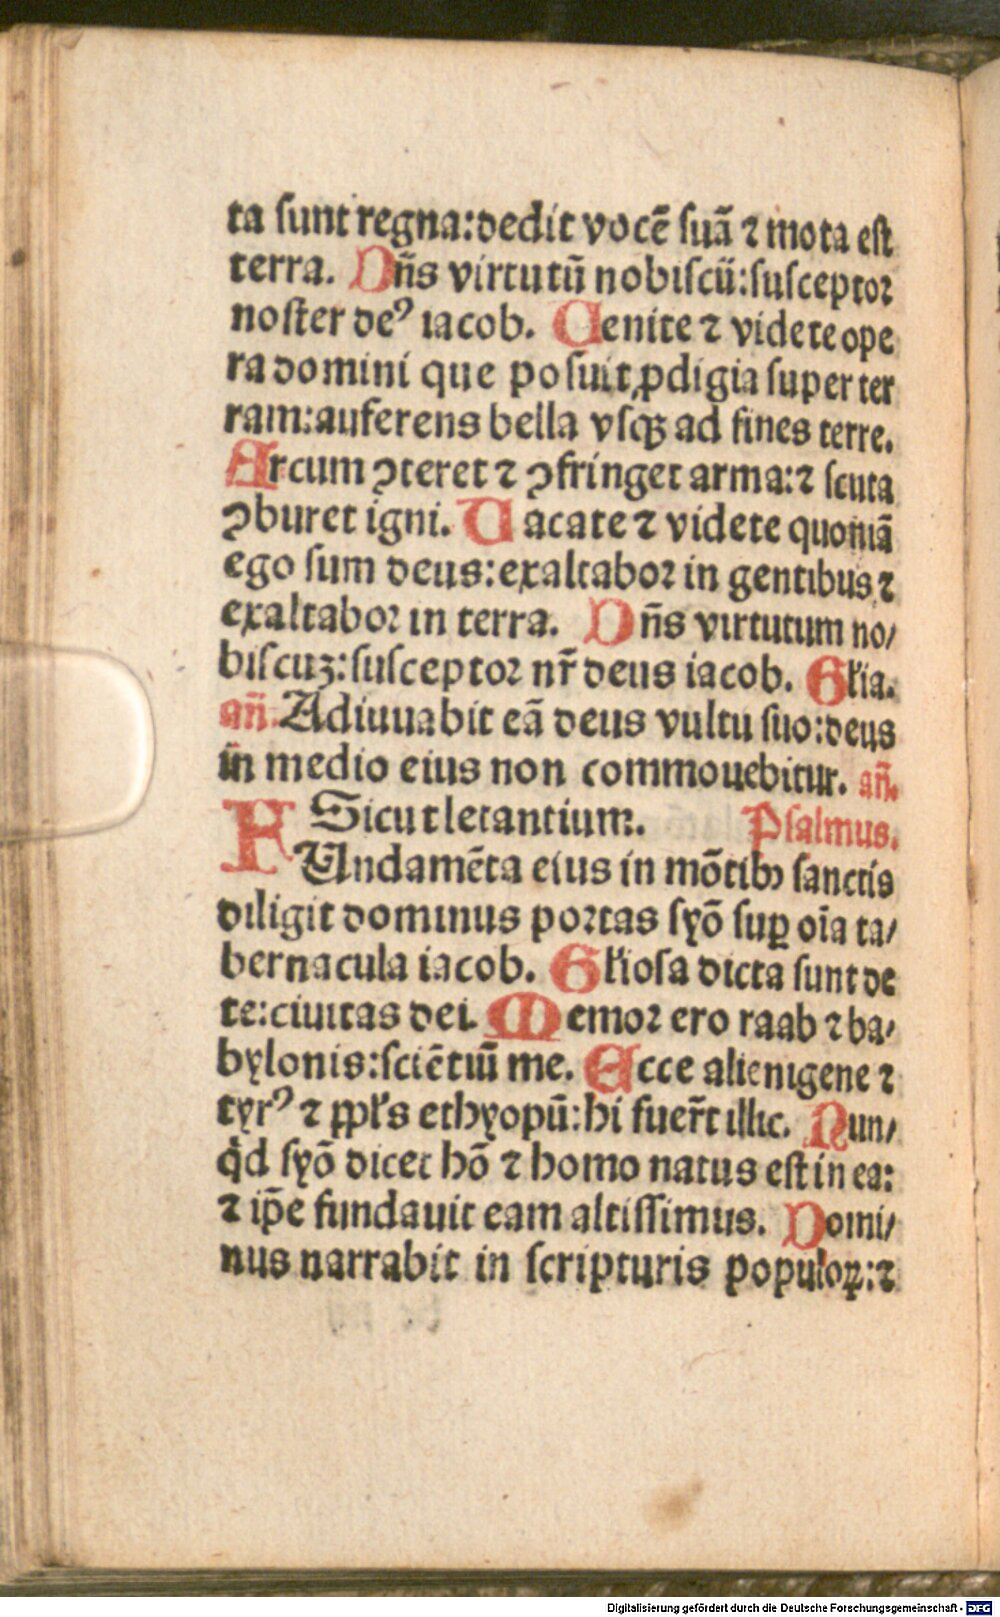 ta sunt regna:dedit vocē suā ⁊ mota est
terra. Dn̄s virtutū nobiscū:susceptor
noster deꝰ iacob. Uenite ⁊ videte ope
ra domini que posuit ꝓdigia super ter
ram:auferens bella vsqꝫ ad fines terre.
Arcum ꝯteret ⁊ ꝯfringet arma:⁊ scuta
ꝯburet igni. Uacate ⁊ videte quoniā
ego sum deus:exaltabor in gentibus ⁊
exaltabor in terra. Dn̄s virtutum no/
biscuꝫ:susceptor nr̄ deus iacob. Głia.
an̄. Adiuuabit eā deus vultu suo:deus
in medio eius non commouebitur. an̄.
Sicut letantium. Psalmus.
FUndamēta eius in mōtibꝰ sanctis
diligit dominus portas syō suꝑ oīa ta/
bernacula iacob. Głiosa dicta sunt de
te:ciuitas dei. Memor ero raab ⁊ ba/
bylonis:sciētiū me. Ecce alienigene ⁊
tyrꝰ ⁊ ppłs ethyopū:hi fuer̄t illic. Nun/
qͥd syō dicet hō ⁊ homo natus est in ea:
⁊ ip̄e fundauit eam altissimus. Domi/
nus narrabit in scripturis populoꝝ:⁊
Digitalisierung gefördert durch die Deutsche Forschungsgemeinschaft - DFG